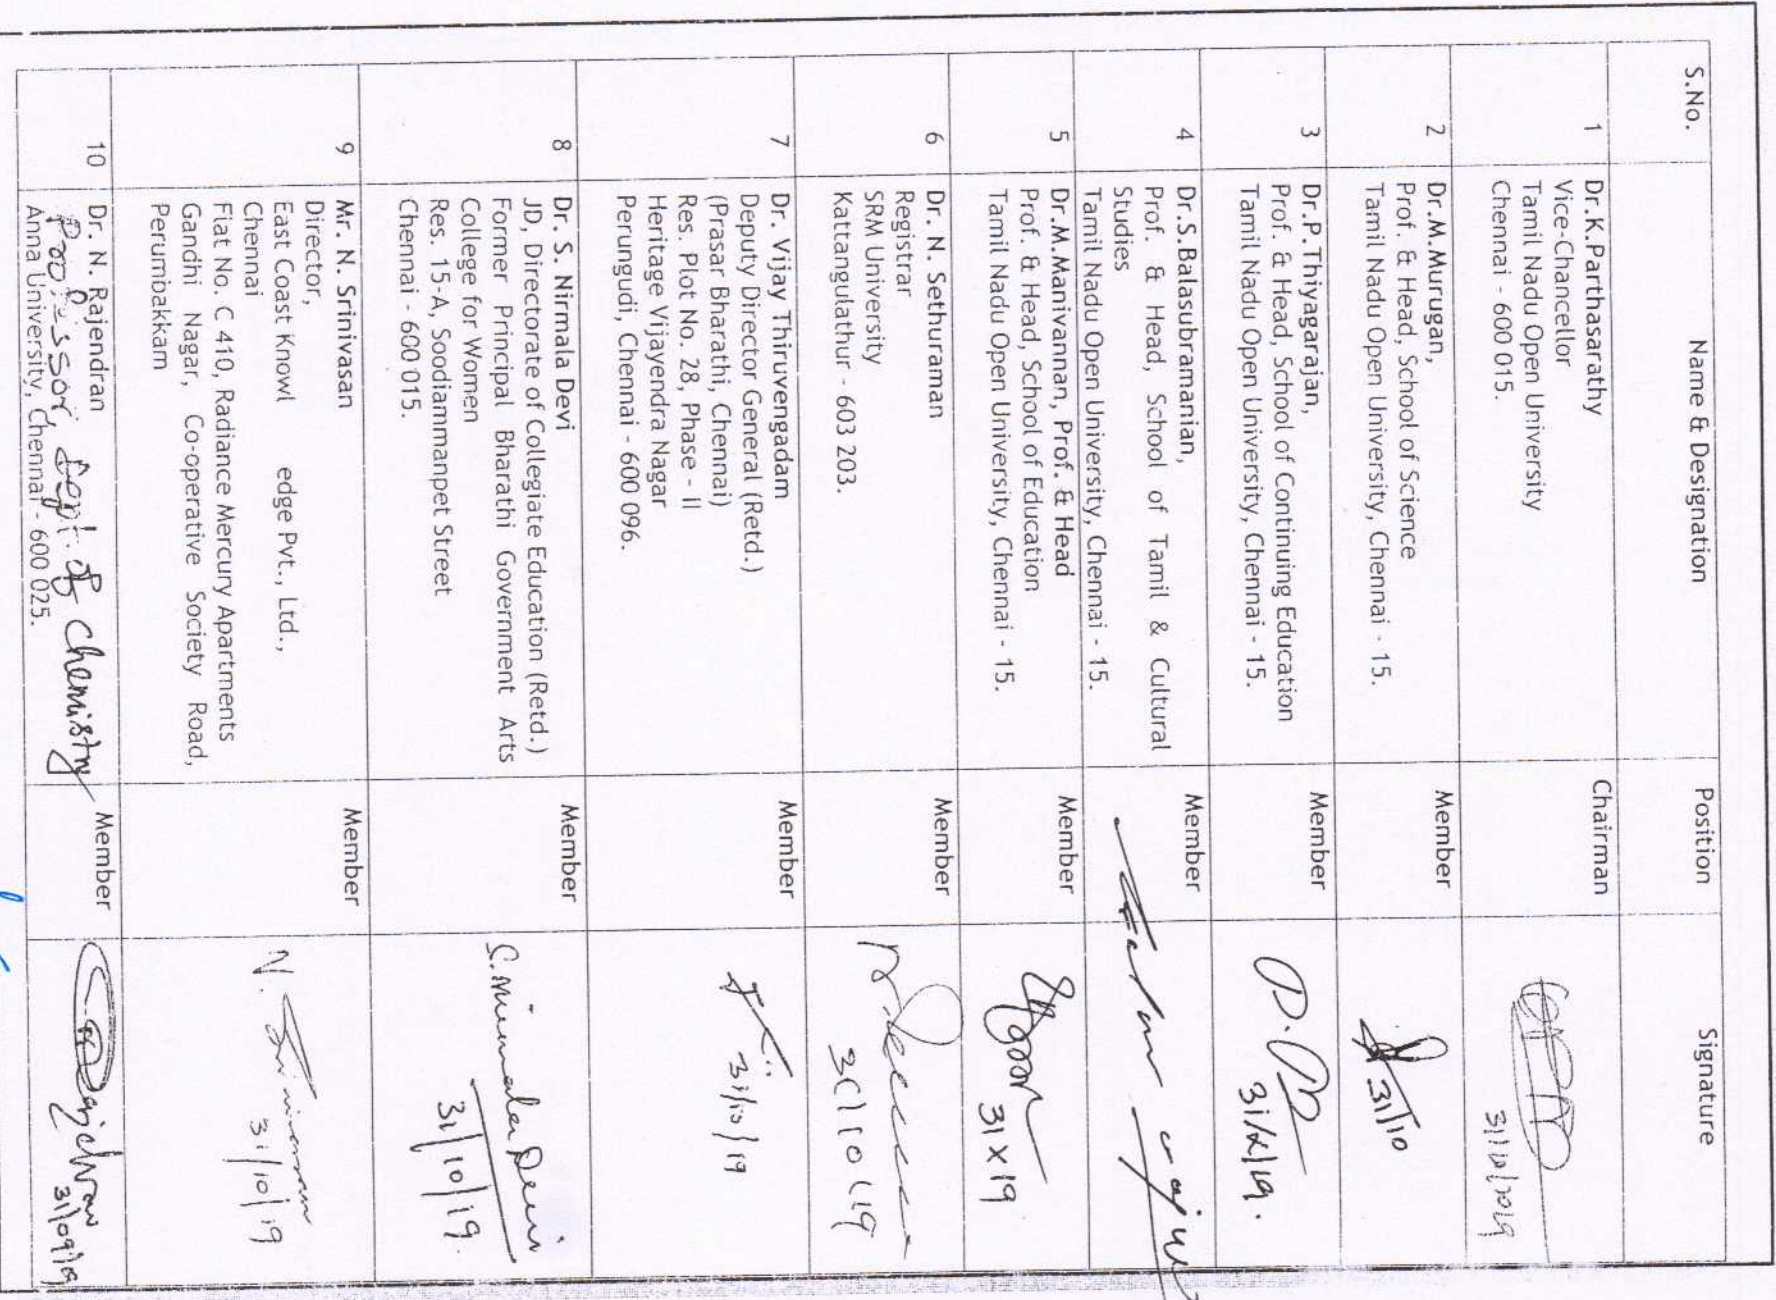 S.No. Name & Designation Position Signature
1 Dr.K.Parthasarathy Chairman
Vice-Chancellor
Tamil Nadu Open University
Chennai - 600 015.
31/10/2019
2 Dr.M.Murugan, Member
Prof. & Head, School of Science
Tamil Nadu Open University, Chennai - 15.
31/10
3 Dr.P.Thiyagarajan, Member
Prof. & Head, School of Continuing Education
Tamil Nadu Open University, Chennai - 15.
31/X/19.
4 Dr.S.Balasubramanian, Member
Prof. & Head, School of Tamil & Cultural
Studies
Tamil Nadu Open University, Chennai - 15.
5 Dr.M.Manivannan, Prof. & Head Member
Prof. & Head, School of Education
Tamil Nadu Open University, Chennai - 15.
31 X 19
6 Dr. N. Sethuraman Member
Registrar
SRM University
Kattangulathur - 603 203.
31/10/19
7 Dr. Vijay Thiruvengadam Member
Deputy Director General (Retd.)
(Prasar Bharathi, Chennai)
Res. Plot No. 28, Phase - II
Heritage Vijayendra Nagar
Perungudi, Chennai - 600 096.
31/10/19
8 Dr. S. Nirmala Devi Member
JD, Directorate of Collegiate Education (Retd.)
Former Principal Bharathi Government Arts
College for Women
Res. 15-A, Soodiammanpet Street
Chennai - 600 015.
S. Nirmala Devi
31/10/19.
9 Mr. N. Srinivasan Member
Director,
East Coast Knowl edge Pvt., Ltd.,
Chennai
Flat No. C 410, Radiance Mercury Apartments
Gandhi Nagar, Co-operative Society Road,
Perumbakkam
N. Srinivasan
31/10/19
10 Dr. N. Rajendran Member
Professor, Dept. of Chemistry
Anna University, Chennai - 600 025.
31/09/19